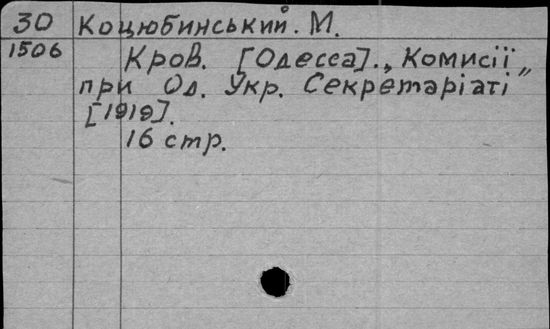 30 Коцюбинський. М.
1506 Кров. [Одесса]. „Комисії„
при Од. Укр. Секретаріаті
[1919].
16 стр.